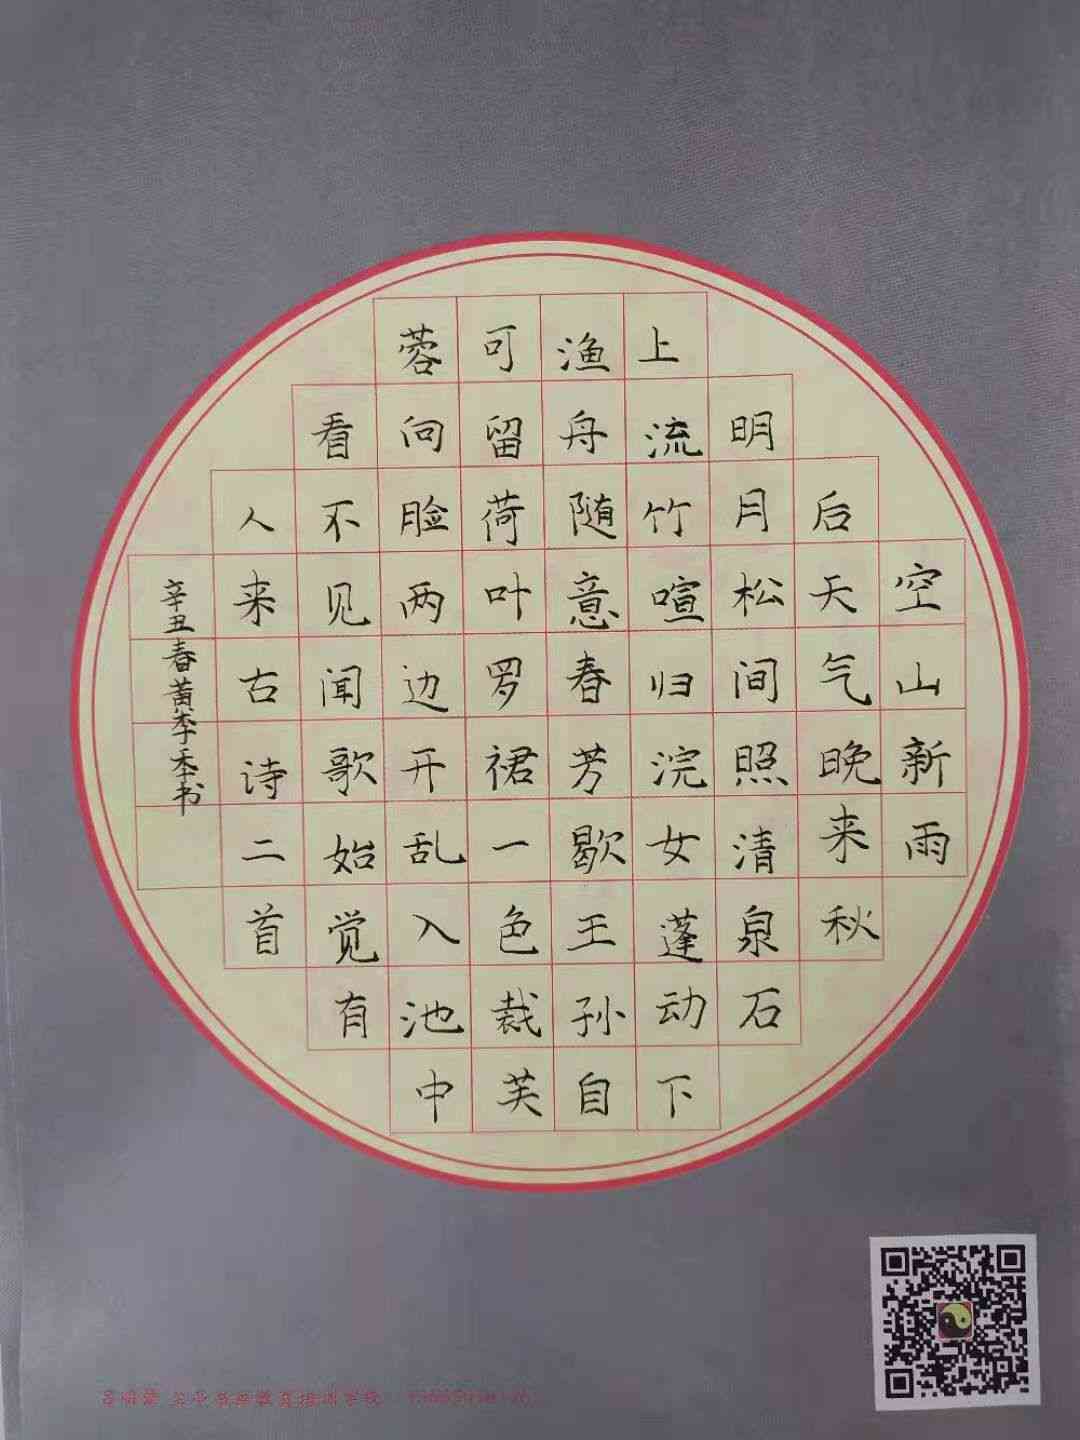 空山新雨
后天气晚来秋
明月松间照清泉石
上流竹喧归浣女蓬动下
渔舟随意春芳歇王孙自
可留荷叶罗裙一色裁芙
蓉向脸两边开乱入池中
看不见闻歌始觉有
人来古诗二首
辛丑春黄李书
教育培训学校